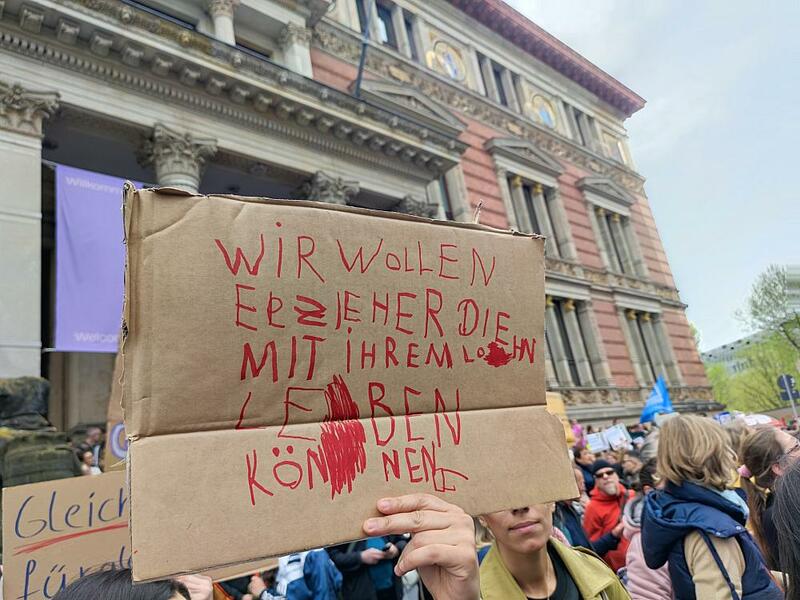 Willkomm
Welco
WiR WOLLEN
ERZJEHER DIE
MIT IHREM LOHN
LE BEN
KÖN NEN
Gleich
für